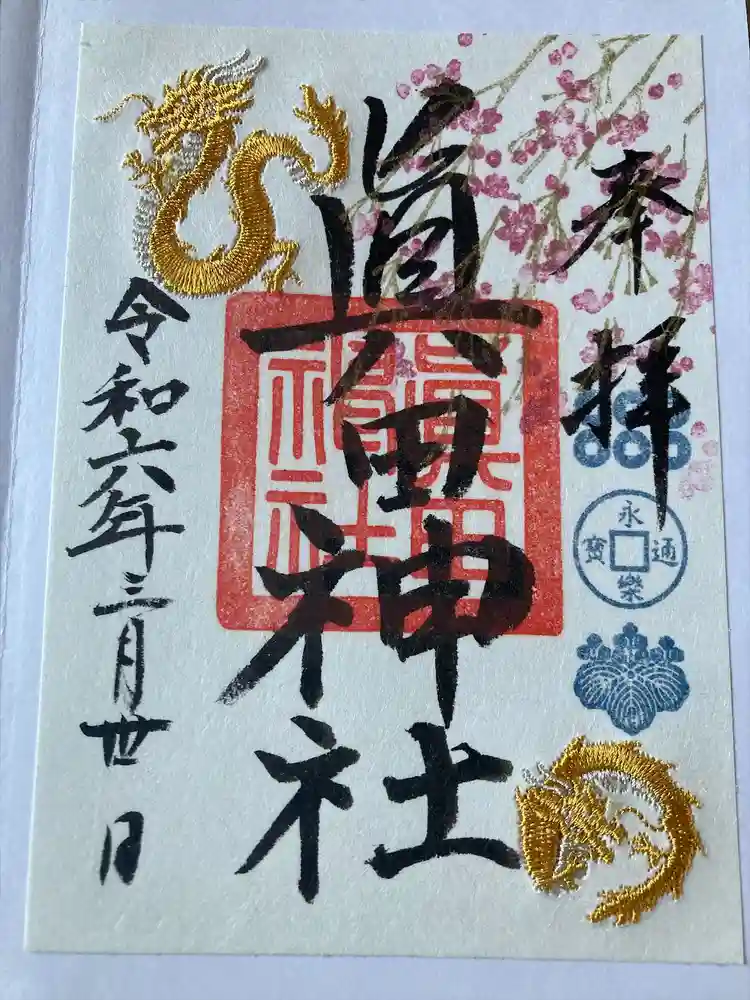 奉拝
永樂通寶
眞田神社
眞田神社
令和六年三月丗日